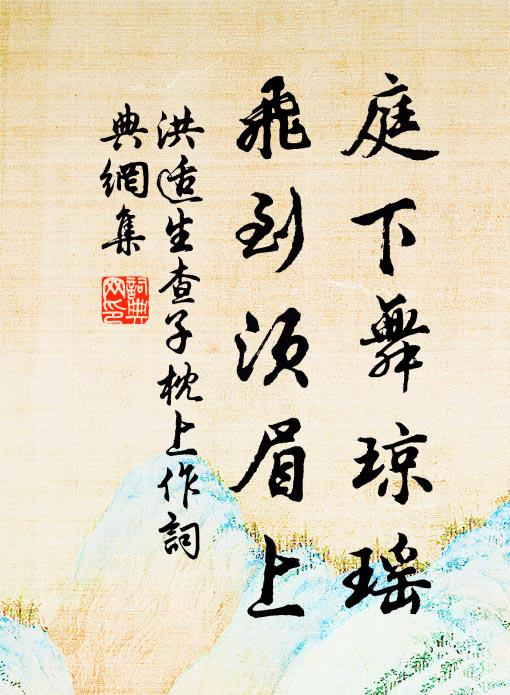 庭下舞琼瑶
飛到須眉上
洪适生查子枕上作詞
典網集
詞典网印